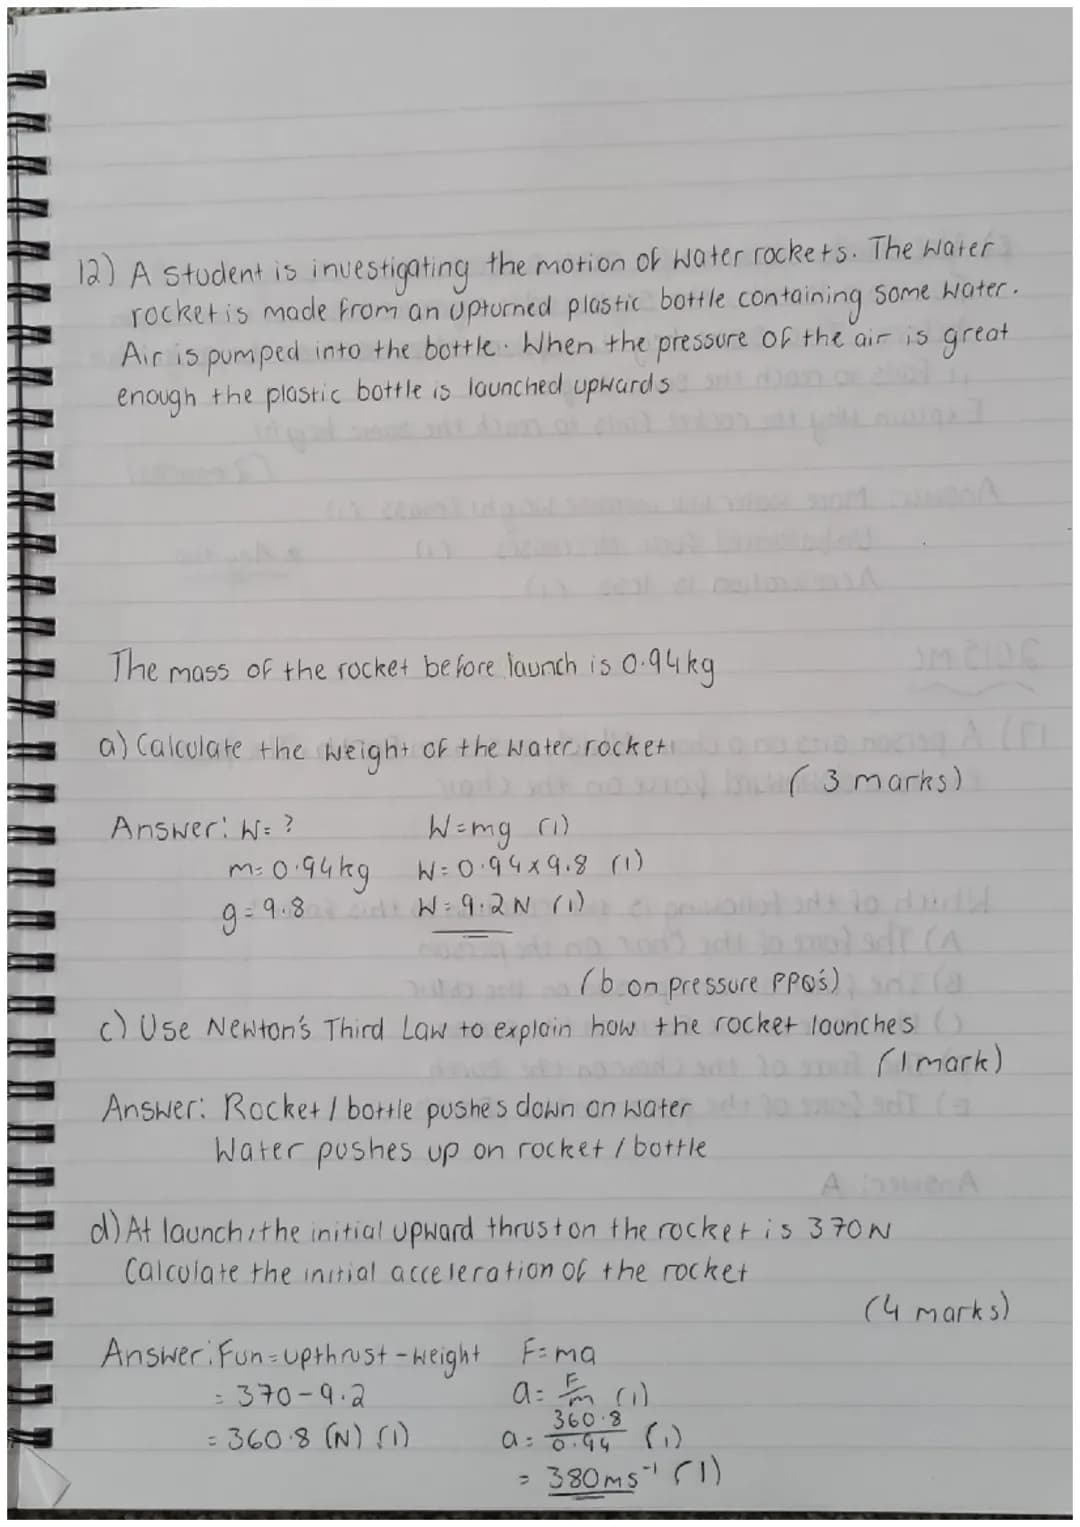 12) A student is investigating the motion of water rockets. The water
rocket is made from an upturned plastic bottle containing some water.
Air is pumped into the bottle. When the pressure of the air is great
enough the plastic bottle is launched upwards
The mass of the rocket before launch is 0.94kg
a) Calculate the weight of the water rocket
(3 marks)
Answer: W= ? W=mg (1)
m=0.94kg W=0.94x9.8 (1)
g=9.8 W=9.2N (1)
(b on pressure PPQ's)
c) Use Newton's Third Law to explain how the rocket launches
(1 mark)
Answer: Rocket / bottle pushes down on water
Water pushes up on rocket / bottle
d) At launch, the initial upward thrust on the rocket is 370N
Calculate the initial acceleration of the rocket
(4 marks)
Answer: Fun=upthrust-weight F=ma
=370-9.2 a=F/m (1)
=360.8 (N) (1) a=360.8/0.94 (1)
=380ms⁻¹ (1)